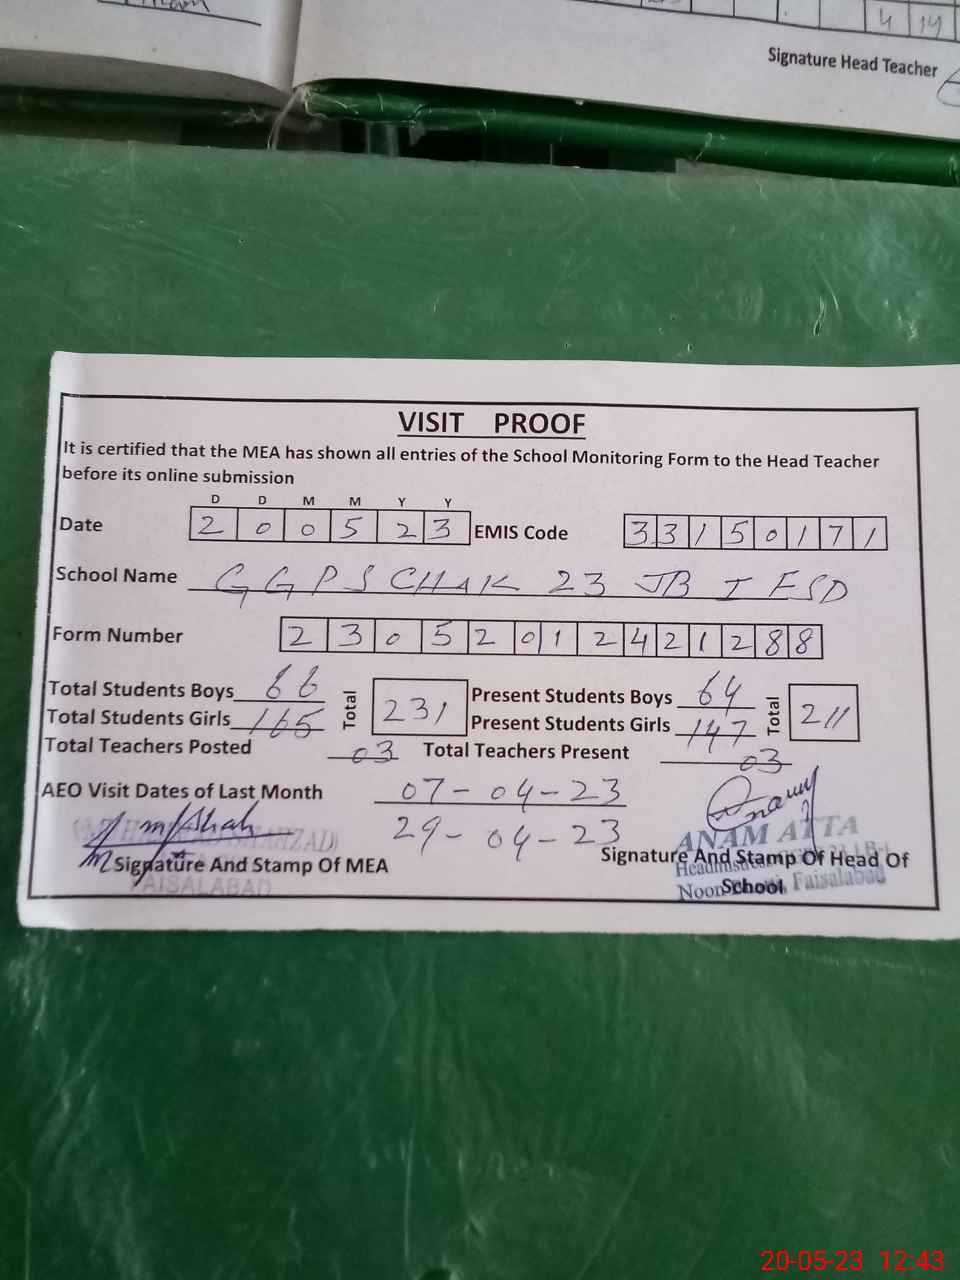 4 14
Signature Head Teacher
VISIT PROOF
It is certified that the MEA has shown all entries of the School Monitoring Form to the Head Teacher
before its online submission
D D M M Y Y
Date 2 0 0 5 2 3 EMIS Code 3 3 1 5 0 1 7 1
School Name GGPS CHAK 23 JB I FSD
Form Number 2 3 0 5 2 0 1 2 4 2 1 2 8 8
Total Students Boys 66 Total 231 Present Students Boys 64 Total 211
Total Students Girls 165 Present Students Girls 147
Total Teachers Posted 03 Total Teachers Present 03
AEO Visit Dates of Last Month 07-04-23
29-04-23
ANAM ATTA
Signature And Stamp Of MEA Signature And Stamp Of Head Of
School
Faisalabad
FAISALABAD
20-05-23 12:43